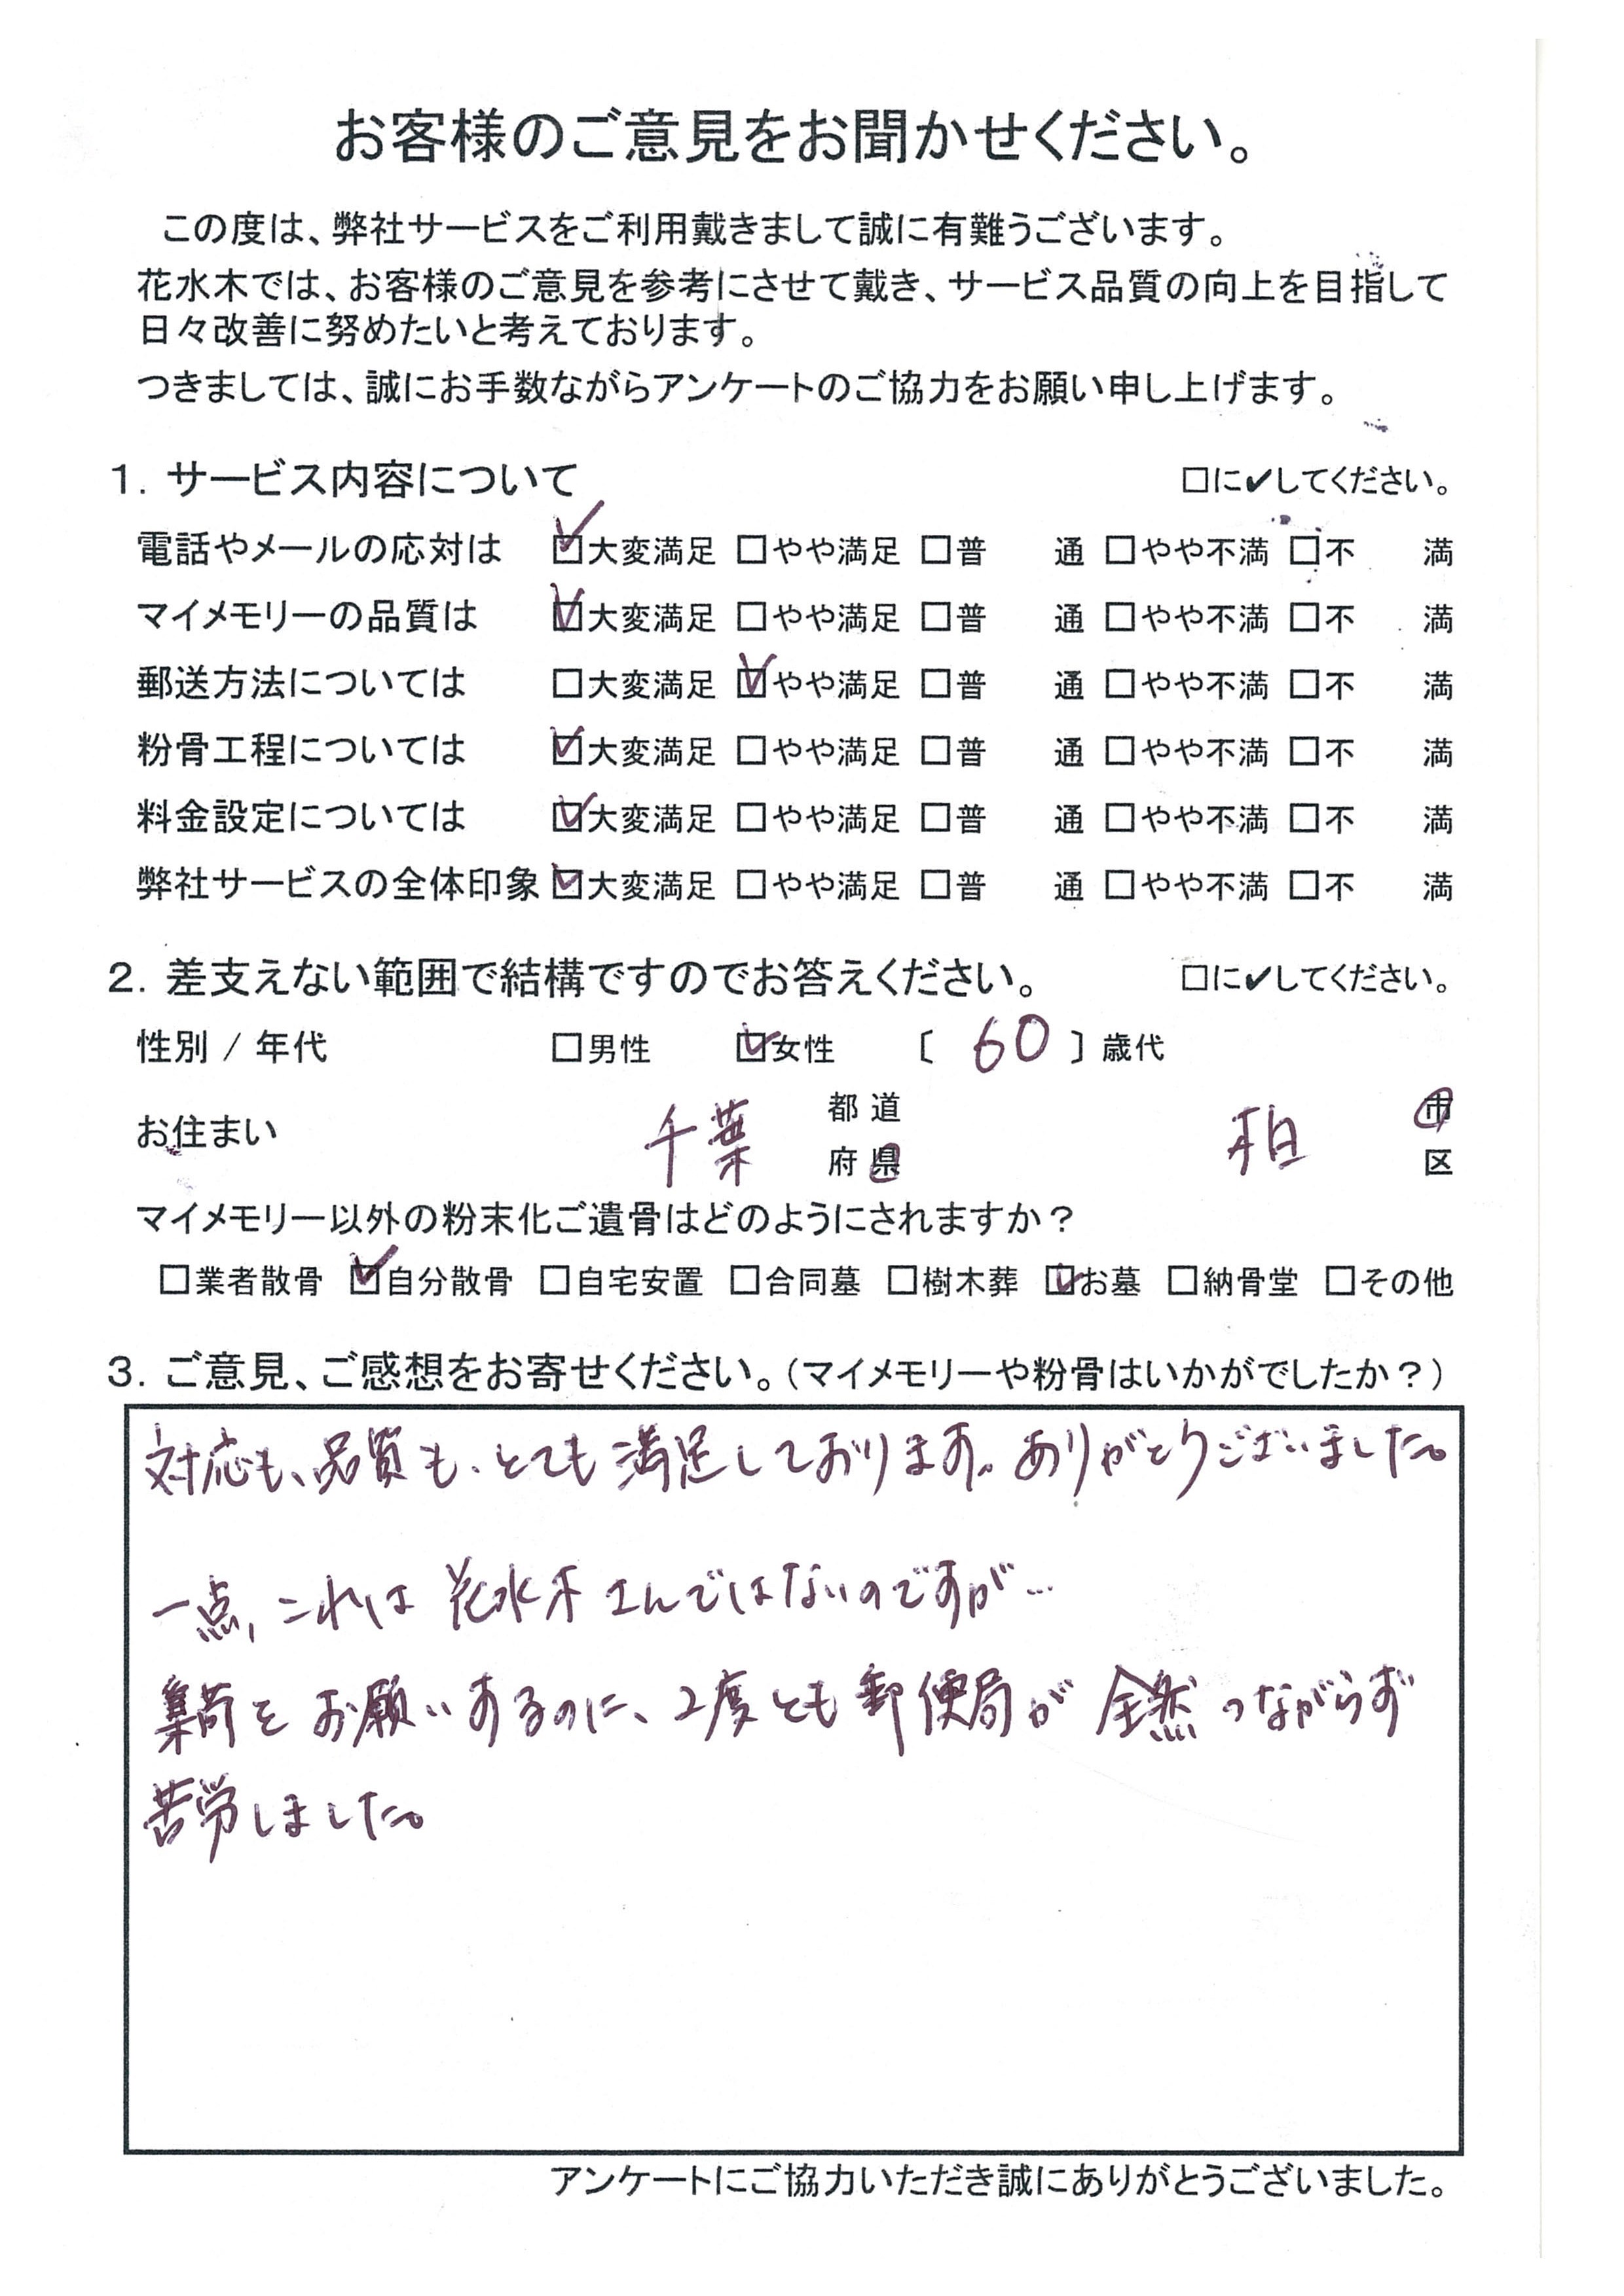 お客様のご意見をお聞かせください。
この度は、弊社サービスをご利用戴きまして誠に有難うございます。
花水木では、お客様のご意見を参考にさせて戴き、サービス品質の向上を目指して
日々改善に努めたいと考えております。
つきましては、誠にお手数ながらアンケートのご協力をお願い申し上げます。
1. サービス内容について □に✔してください。
電話やメールの応対は ☑大変満足 □やや満足 □普 通 □やや不満 □不 満
マイメモリーの品質は ☑大変満足 □やや満足 □普 通 □やや不満 □不 満
郵送方法については □大変満足 ☑やや満足 □普 通 □やや不満 □不 満
粉骨工程については ☑大変満足 □やや満足 □普 通 □やや不満 □不 満
料金設定については ☑大変満足 □やや満足 □普 通 □やや不満 □不 満
弊社サービスの全体印象 ☑大変満足 □やや満足 □普 通 □やや不満 □不 満
2. 差支えない範囲で結構ですのでお答えください。 □に✔してください。
性別 / 年代 □男性 ☑女性 〔 60 〕歳代
お住まい 千葉 都 道 府 県 柏 市 区
マイメモリー以外の粉末化ご遺骨はどのようにされますか?
□業者散骨 ☑自分散骨 □自宅安置 □合同墓 □樹木葬 ☑お墓 □納骨堂 □その他
3. ご意見、ご感想をお寄せください。(マイメモリーや粉骨はいかがでしたか?)
対応も、品質も、とても満足しております。ありがとうございました。
一点、これは花水木さんではないのですが…
集荷をお願いするのに、2度とも郵便局が全然つながらず
苦労しました。
アンケートにご協力いただき誠にありがとうございました。